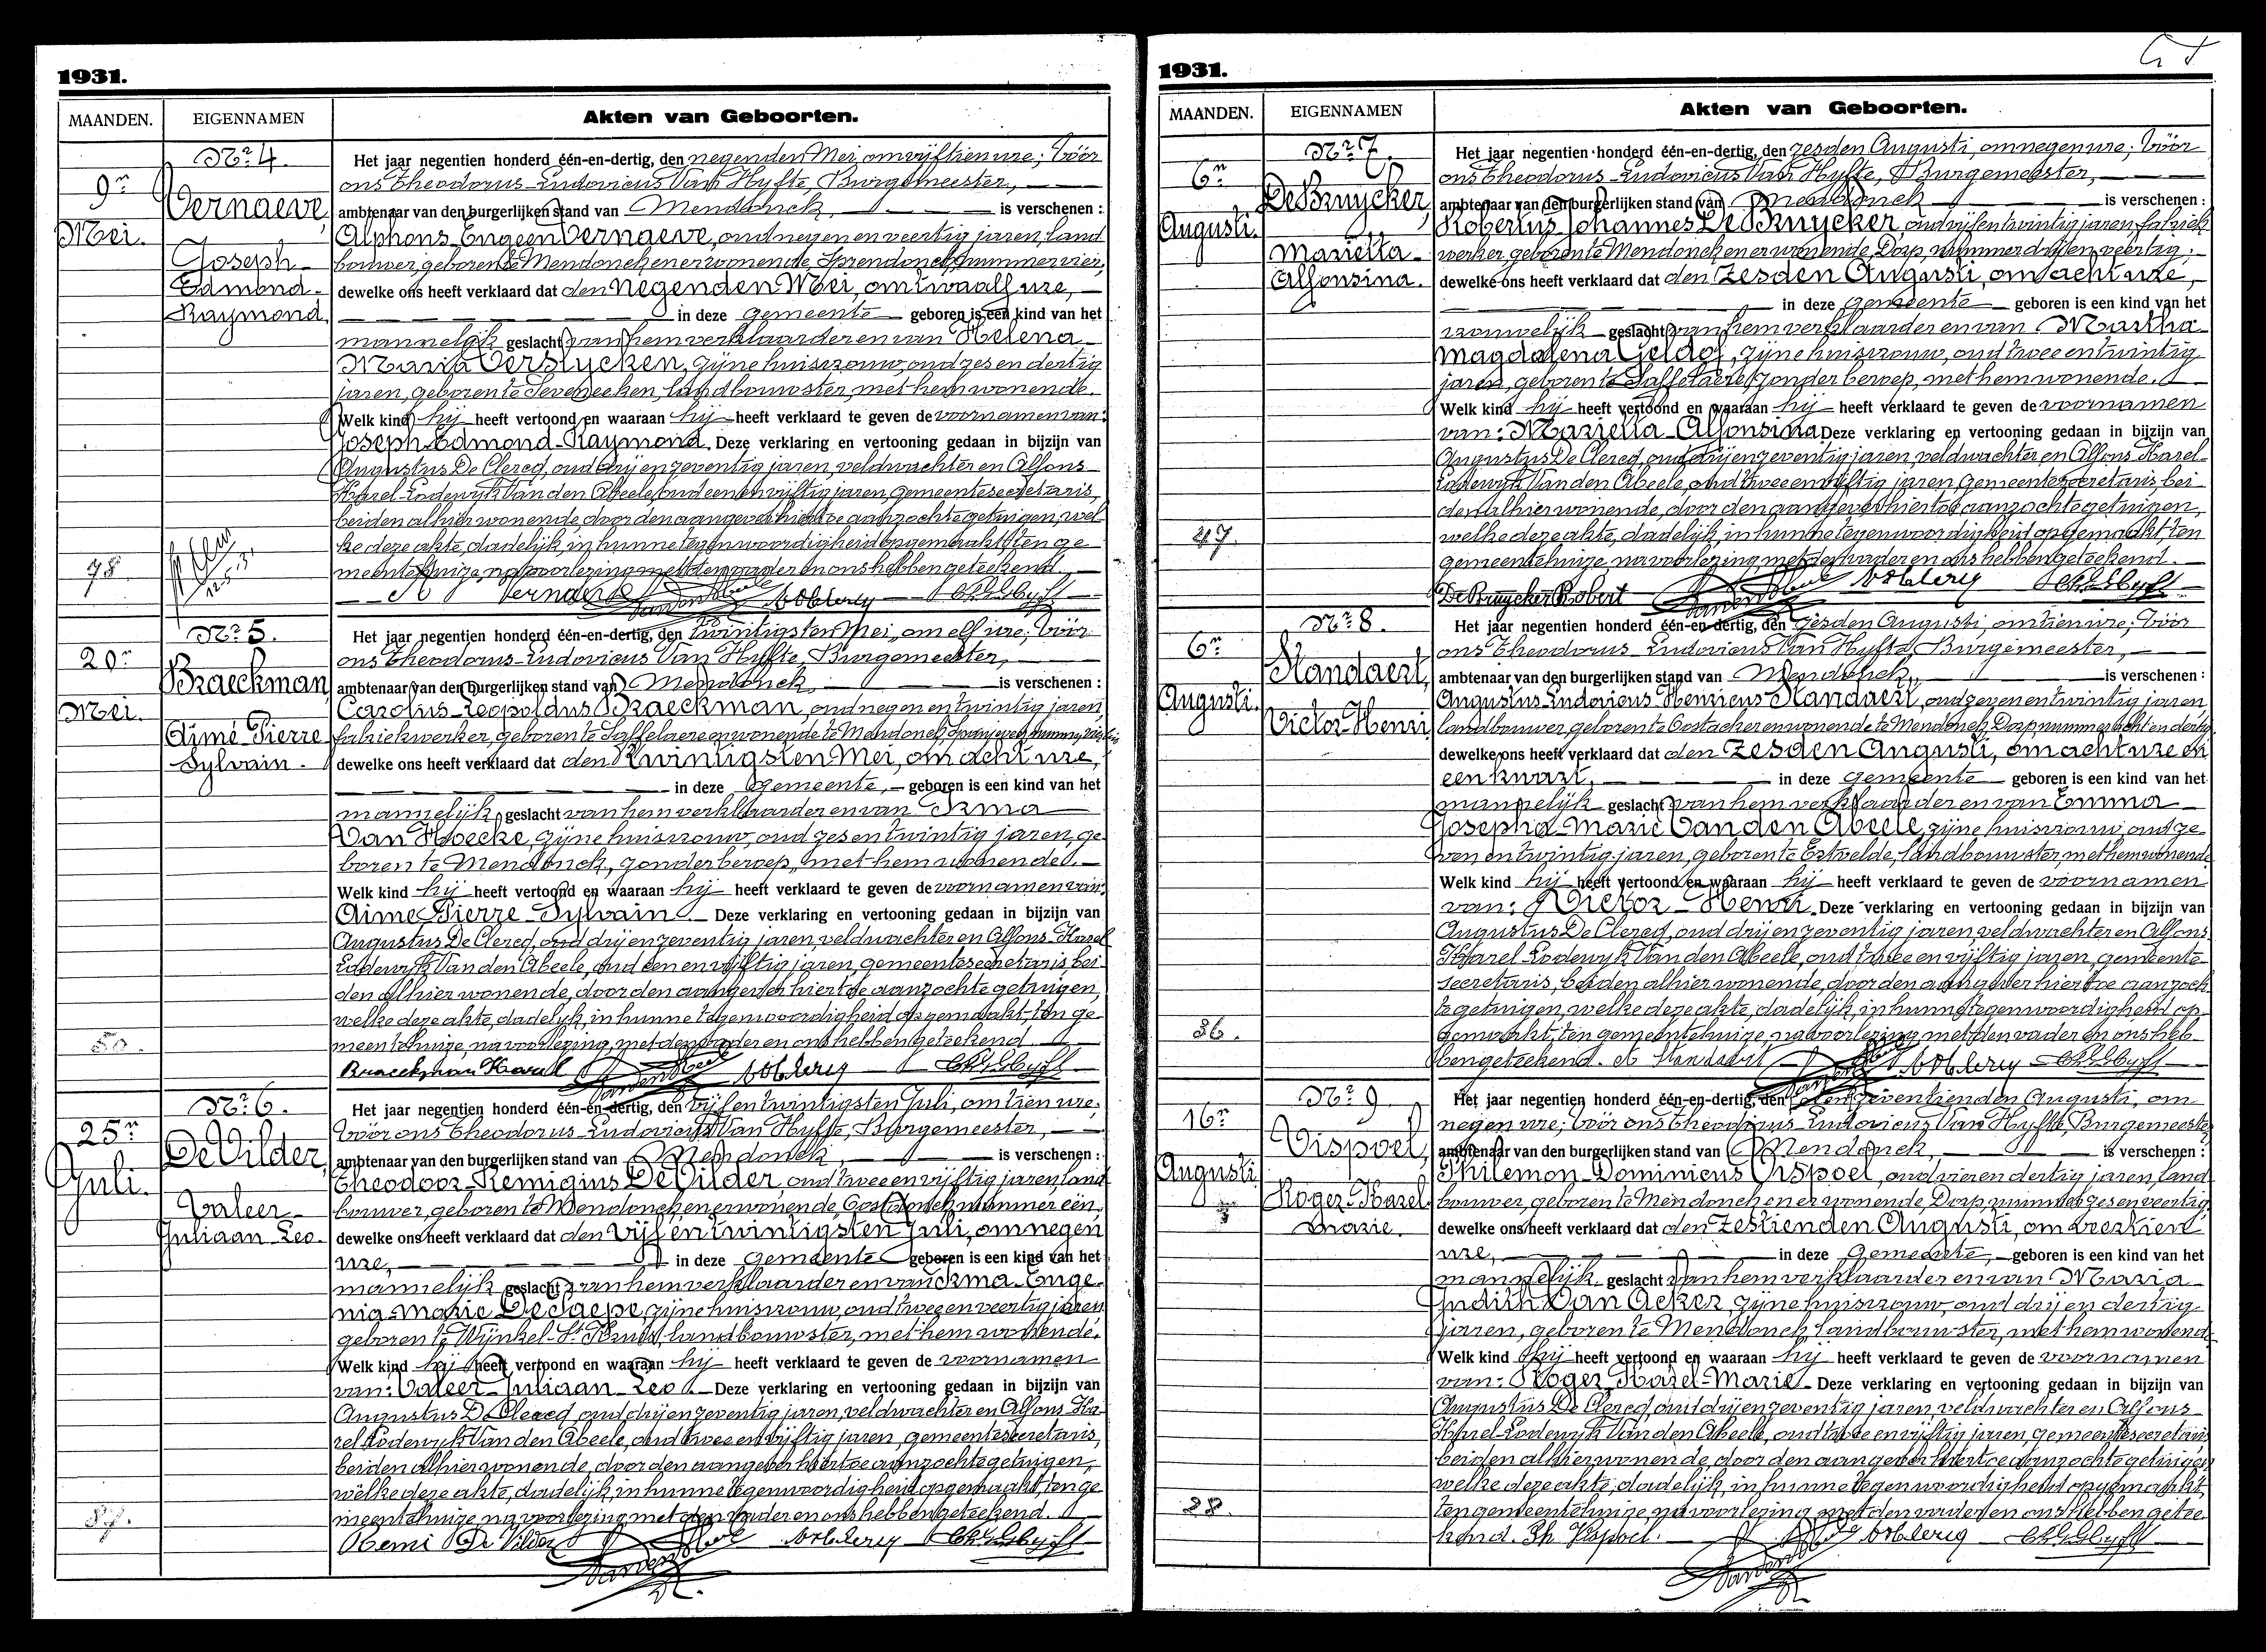 1931.
MAANDEN.
EIGENNAMEN
Akten van Geboorten.
Nr 4.
9n
Mei.
Vernaeve,
Joseph-
Edmond-
Raymond.
78
Het jaar negentien honderd één-en-dertig, den negenden Mei, om vijftien ure; Vóór
ons Theodorus-Ludovicus Van Hyfte, Burgemeester,
ambtenaar van den burgerlijken stand van Mendonck, is verschenen :
Alphons-Eugeen Vernaeve, oud negen en veertig jaren, land
bouwer, geboren te Mendonck en er wonende, Sprendonck, nummer vier,
dewelke ons heeft verklaard dat den negenden Mei, om twaalf ure,
in deze gemeente geboren is een kind van het
mannelijk geslacht van hem verklaarder en van Helena-
Maria Verslycken, zijne huisvrouw, oud zes en dertig
jaren, geboren te Seveneeken, landbouwster, met hem wonende.
Welk kind hij heeft vertoond en waaraan hij heeft verklaard te geven de voornamen van:
Joseph-Edmond-Raymond. Deze verklaring en vertooning gedaan in bijzijn van
Augustus De Clercq, oud drij en zeventig jaren, veldwachter en Alfons-
Karel-Lodewyk Van den Abeele, oud een en vijftig jaren, gemeentesecretaris,
beiden alhier wonende, door den aangever hiertoe aanzochte getuigen, wel
ke deze akte, dadelijk, in hunne tegenwoordigheid opgemaakt, ten ge
meentehuize, na voorlezing, met den vader en ons hebben geteekend.
Vernaeve
Nr 5.
20n
Mei.
Braeckman,
Aimé-Pierre
Sylvain.
50.
Het jaar negentien honderd één-en-dertig, den twintigsten Mei, om elf ure; Vóór
ons Theodorus-Ludovicus Van Hyfte, Burgemeester,
ambtenaar van den burgerlijken stand van Mendonck, is verschenen :
Carolus-Leopoldus Braeckman, oud negen en twintig jaren,
fabriekwerker, geboren te Saffelaere en wonende te Mendonck,
dewelke ons heeft verklaard dat den twintigsten Mei, om acht ure,
in deze gemeente, geboren is een kind van het
mannelijk geslacht van hem verklaarder en van Irma
Van Hoecke, zijne huisvrouw, oud zes en twintig jaren, ge-
boren te Mendonck, zonder beroep, met hem wonende.
Welk kind hij heeft vertoond en waaraan hij heeft verklaard te geven de voornamen van:
Aimé-Pierre-Sylvain. Deze verklaring en vertooning gedaan in bijzijn van
Augustus De Clercq, oud drij en zeventig jaren, veldwachter en Alfons-Karel
Lodewyk Van den Abeele, oud een en vijftig jaren, gemeentesecretaris, bei
den alhier wonende, door den aangever hiertoe aanzochte getuigen,
welke deze akte, dadelijk, in hunne tegenwoordigheid opgemaakt, ten ge
meentehuize, na voorlezing, met den vader en ons hebben geteekend.
Braeckman Karel
Nr 6.
25n
Juli.
De Vilder,
Valeer-
Juliaan-Leo.
87.
Het jaar negentien honderd één-en-dertig, den vijf en twintigsten Juli, om tien ure;
Vóór ons Theodorus-Ludovicus Van Hyfte, Burgemeester,
ambtenaar van den burgerlijken stand van Mendonck, is verschenen :
Theodoor-Remigius De Vilder, oud twee en vijftig jaren, land
bouwer, geboren te Mendonck en er wonende, Oostdonck, nummer één,
dewelke ons heeft verklaard dat den vijf en twintigsten Juli, om negen
ure, in deze gemeente geboren is een kind van het
mannelijk geslacht van hem verklaarder en van Irma-Euge-
nia-Marie De Saepe, zijne huisvrouw, oud twee en veertig jaren,
geboren te Wynkel-St Kruis, landbouwster, met hem wonende.
Welk kind hij heeft vertoond en waaraan hij heeft verklaard te geven de voornamen
van: Valeer-Juliaan-Leo. Deze verklaring en vertooning gedaan in bijzijn van
Augustus De Clercq, oud drij en zeventig jaren, veldwachter en Alfons-Ka-
rel-Lodewyk Van den Abeele, oud twee en vijftig jaren, gemeentesecretaris,
beiden alhier wonende, door den aangever hiertoe aanzochte getuigen,
welke deze akte, dadelijk, in hunne tegenwoordigheid opgemaakt, ten ge
meentehuize, na voorlezing, met den vader en ons hebben geteekend.
Remi De Vilder
1931.
MAANDEN.
EIGENNAMEN
Akten van Geboorten.
Nr 7.
6n
Augusti.
De Bruycker,
Mariella-
Alfonsina.
47.
Het jaar negentien honderd één-en-dertig, den zesden Augusti, om negen ure; Vóór
ons Theodorus-Ludovicus Van Hyfte, Burgemeester,
ambtenaar van den burgerlijken stand van Mendonck is verschenen :
Robertus-Johannes De Bruycker, oud vijf en twintig jaren, fabriek
werker, geboren te Mendonck en er wonende, Dorp, nummer drij en veertig;
dewelke ons heeft verklaard dat den zesden Augusti, om acht ure,
in deze gemeente geboren is een kind van het
vrouwelijk geslacht van hem verklaarder en van Martha
Magdalena Geldof, zijne huisvrouw, oud twee en twintig
jaren, geboren te Saffelaere, zonder beroep, met hem wonende.
Welk kind hij heeft vertoond en waaraan hij heeft verklaard te geven de voornamen
van: Mariella-Alfonsina Deze verklaring en vertooning gedaan in bijzijn van
Augustus De Clercq, oud drij en zeventig jaren, veldwachter en Alfons-Karel-
Lodewyk Van den Abeele, oud twee en vijftig jaren, gemeentesecretaris, bei
den alhier wonende, door den aangever hiertoe aanzochte getuigen,
welke deze akte, dadelijk, in hunne tegenwoordigheid opgemaakt, ten
gemeentehuize, na voorlezing, met den vader en ons hebben geteekend.
De Bruycker Robert
Nr 8.
6n
Augusti.
Standaert,
Victor-Henri
36.
Het jaar negentien honderd één-en-dertig, den zesden Augusti, om tien ure; Vóór
ons Theodorus-Ludovicus Van Hyfte, Burgemeester,
ambtenaar van den burgerlijken stand van Mendonck, is verschenen :
Augustus-Ludovicus-Henricus Standaert, oud zeven en twintig jaren,
landbouwer, geboren te Oostacker en wonende te Mendonck, Dorp, nummer acht en dertig
dewelke ons heeft verklaard dat den zesden Augusti, om acht ure en
een kwart, in deze gemeente geboren is een kind van het
mannelijk geslacht van hem verklaarder en van Emma-
Josepha-Marie Van den Abeele, zijne huisvrouw, oud ze
ven en twintig jaren, geboren te Ertvelde, landbouwster, met hem wonende.
Welk kind hij heeft vertoond en waaraan hij heeft verklaard te geven de voornamen
van: Victor-Henri. Deze verklaring en vertooning gedaan in bijzijn van
Augustus De Clercq, oud drij en zeventig jaren, veldwachter en Alfons-
Karel-Lodewyk Van den Abeele, oud twee en vijftig jaren, gemeente-
secretaris, beiden alhier wonende, door den aangever hiertoe aanzoch
te getuigen, welke deze akte, dadelijk, in hunne tegenwoordigheid op
gemaakt, ten gemeentehuize, na voorlezing, met den vader en ons heb-
ben geteekend. A Standaert
Nr 9.
16n
Augusti
Vispoel,
Roger-Karel
Marie.
28.
Het jaar negentien honderd één-en-dertig, den zeventienden Augusti, om
negen ure; Vóór ons Theodorus-Ludovicus Van Hyfte, Burgemeester
ambtenaar van den burgerlijken stand van Mendonck, is verschenen :
Philemon-Dominicus Vispoel, oud vier en dertig jaren, land
bouwer, geboren te Mendonck en er wonende, Dorp, nummer zes en veertig,
dewelke ons heeft verklaard dat den zestienden Augusti, om veertien
ure, in deze gemeente, geboren is een kind van het
mannelijk geslacht van hem verklaarder en van Maria
Judith Van Acker, zijne huisvrouw, oud drij en dertig
jaren, geboren te Mendonck, landbouwster, met hem wonend.
Welk kind hij heeft vertoond en waaraan hij heeft verklaard te geven de voornamen
van: Roger-Karel-Marie. Deze verklaring en vertooning gedaan in bijzijn van
Augustus De Clercq, oud drij en zeventig jaren, veldwachter en Alfons-
Karel-Lodewyk Van den Abeele, oud twee en vijftig jaren, gemeentesecretaris
beiden alhier wonende, door den aangever hiertoe aanzochte getuigen,
welke deze akte, dadelijk, in hunne tegenwoordigheid opgemaakt,
ten gemeentehuize, na voorlezing, met den vader en ons hebben getee-
kend. Ph Vispoel.